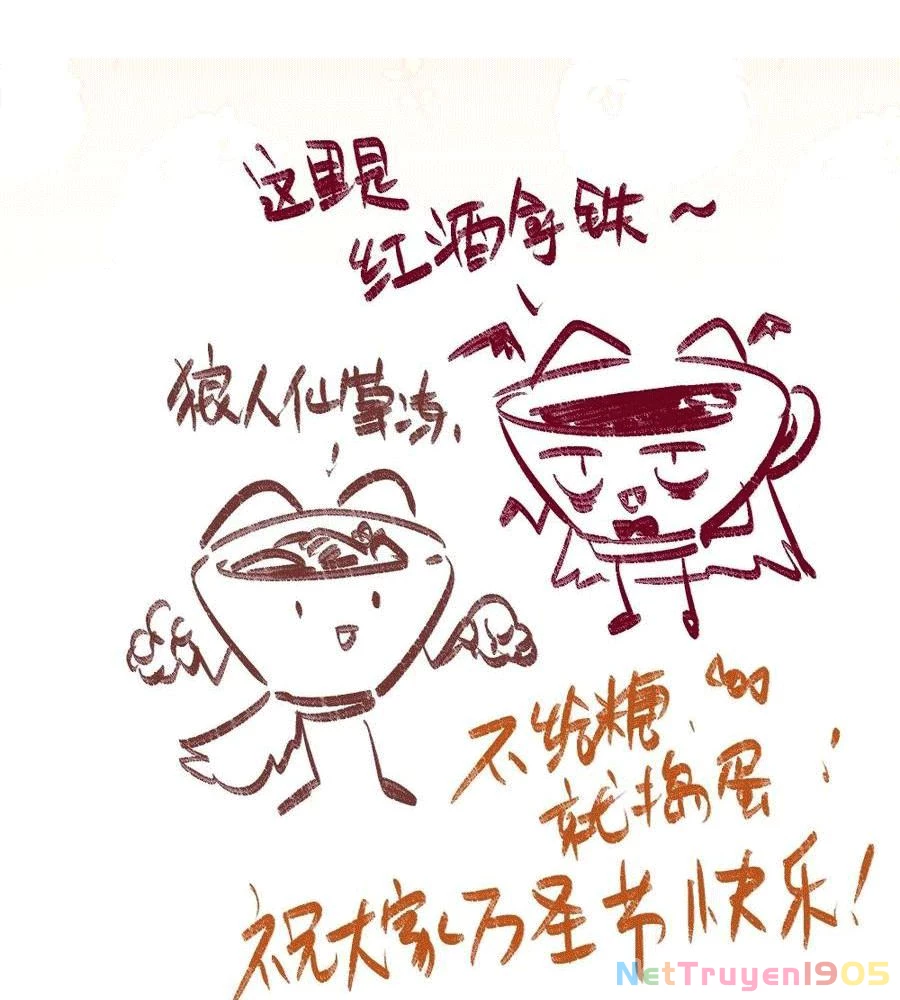 这里是
红酒拿铁~
狼人仙草冻
不给糖
就捣蛋!
祝大家万圣节快乐!
NetTruyen1905